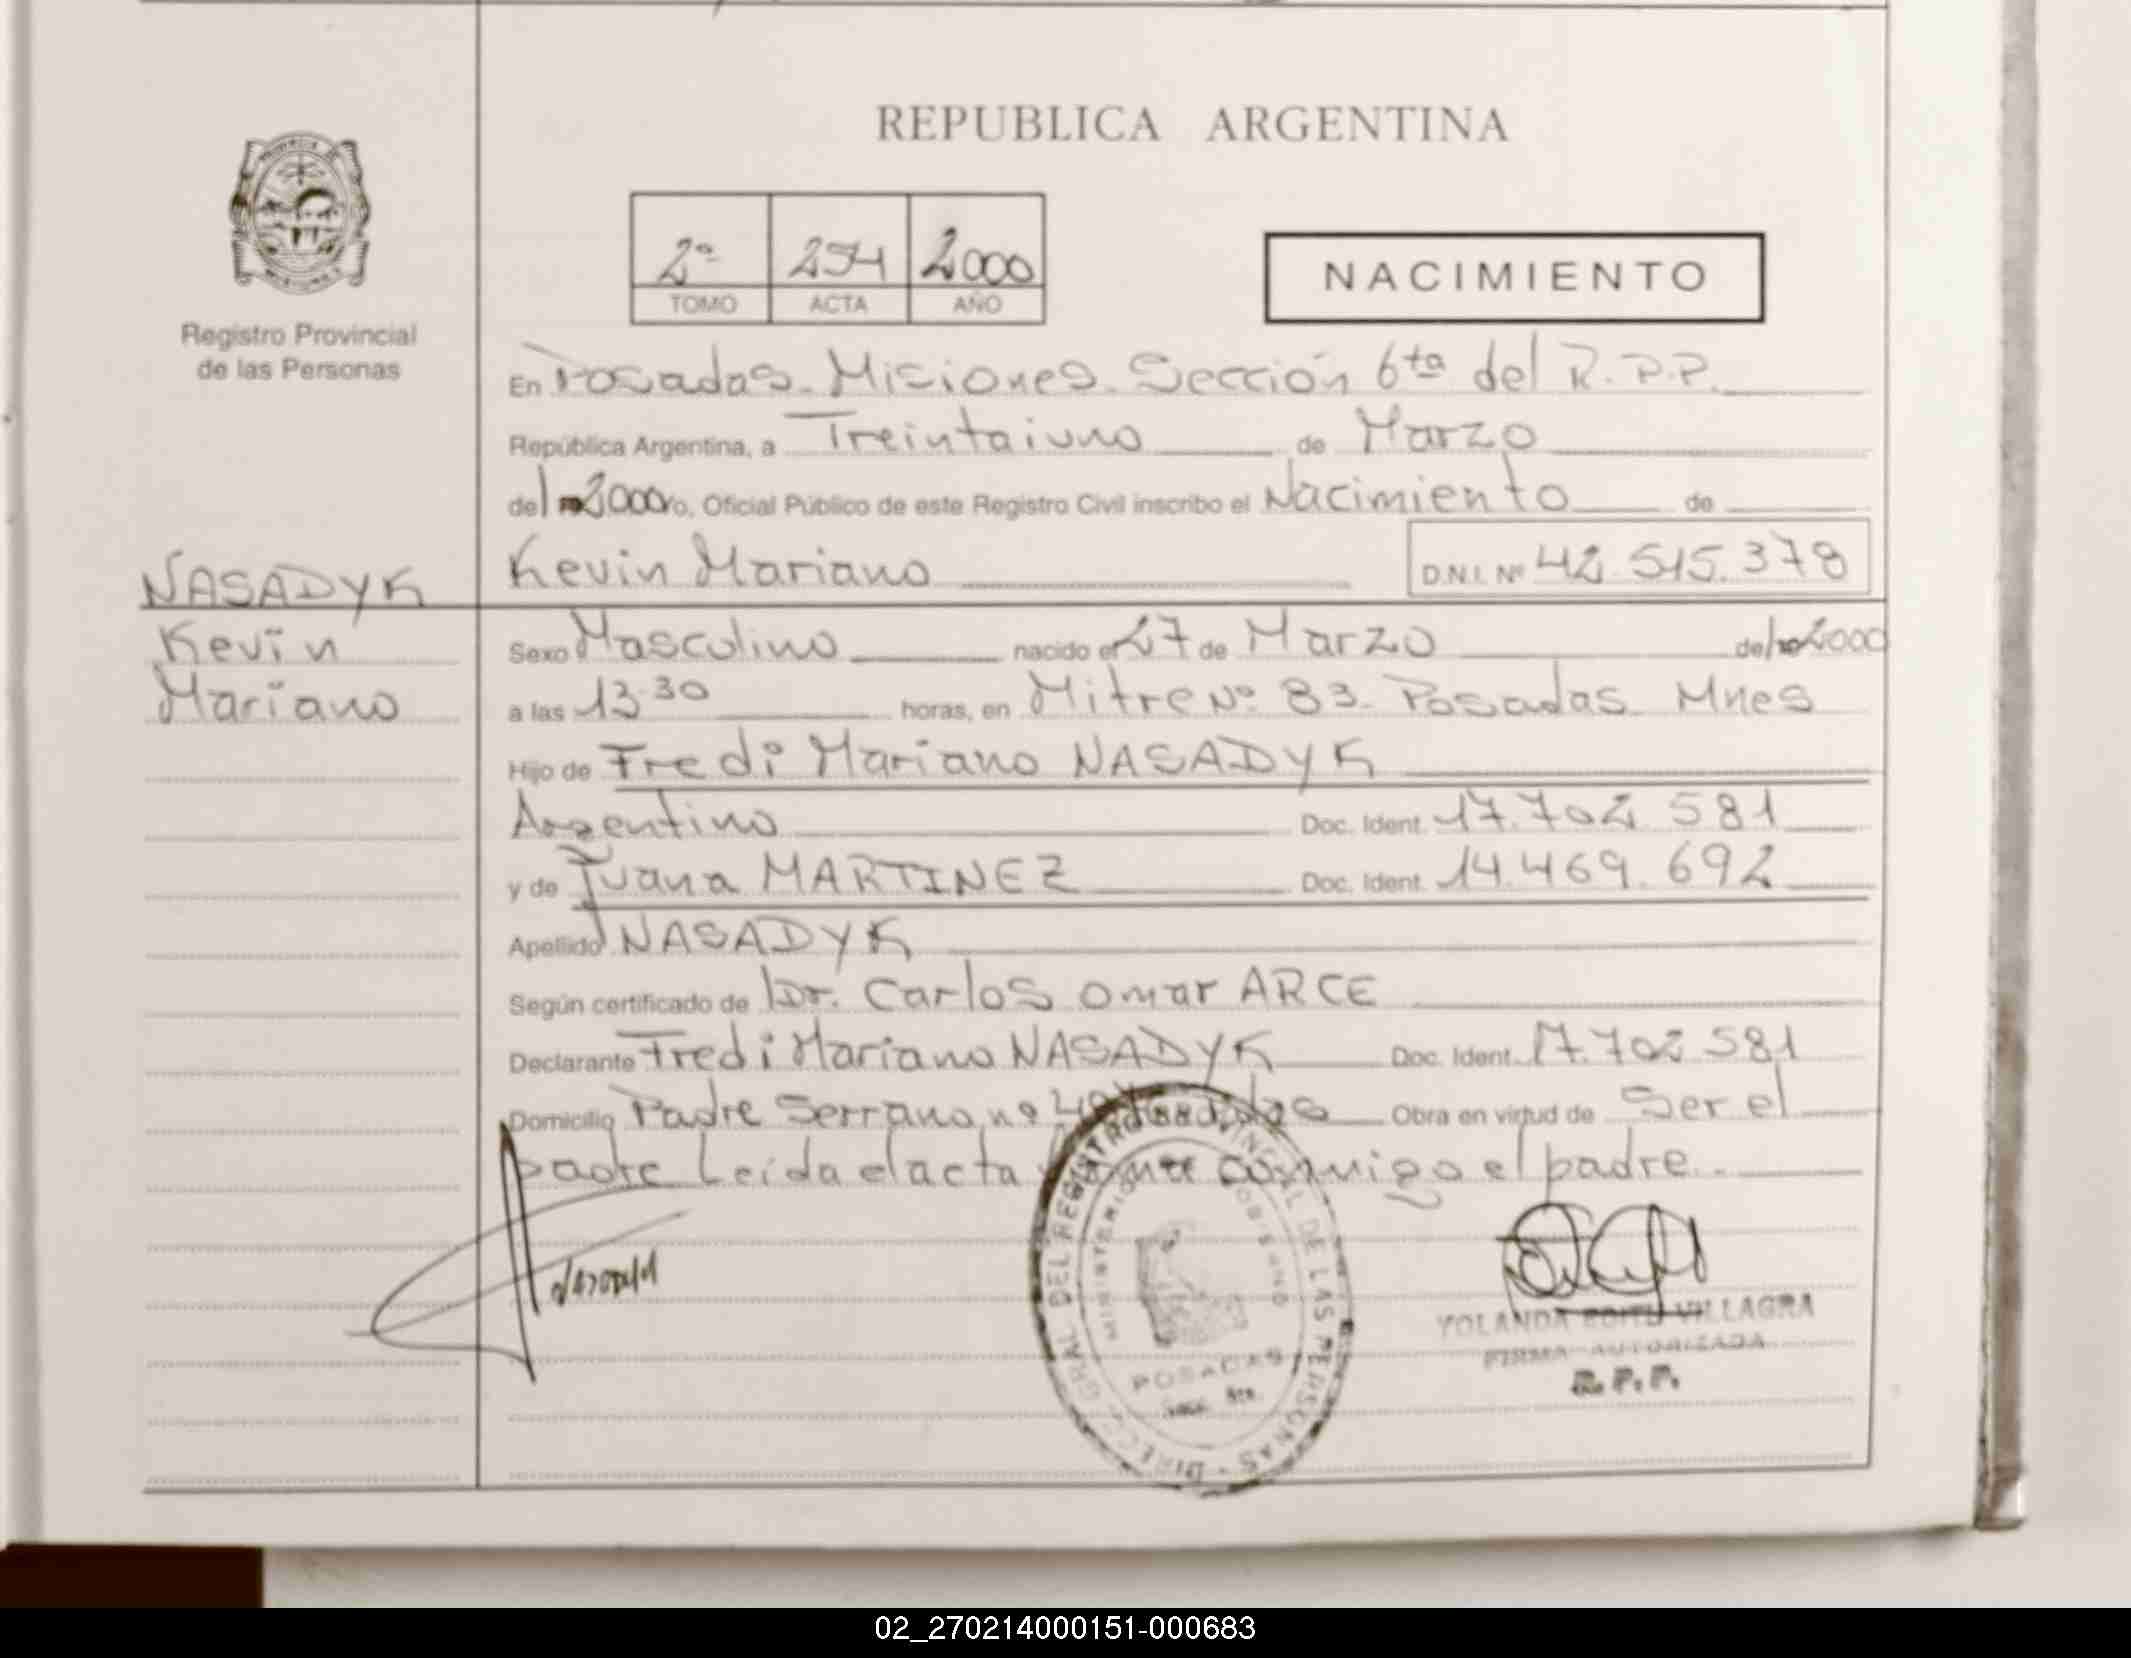 REPUBLICA ARGENTINA
Registro Provincial
de las Personas
2º 2000
TOMO ACTA AÑO
NACIMIENTO
En Posadas. Misiones. Sección 6ta del R.P.P.
República Argentina, a Treintaiuno de Marzo
del 2000 Oficial Público de este Registro Civil inscribo el Nacimiento de
Kevin Mariano D.N.I. Nº 42.515.378
NASADYK
Kevin
Mariano
Sexo Masculino nacido el 27 de Marzo del 2000
a las 13.30 horas, en Mitre Nº 83. Posadas Mnes
Hijo de Fredi Mariano NASADYK
Argentino Doc. Ident. 17.702.581
y de Juana MARTINEZ Doc. Ident. 14.469.692
Apellido NASADYK
Según certificado de Dr. Carlos Omar ARCE
Declarante Fredi Mariano NASADYK Doc. Ident. 17.702.581
Domicilio Padre Serrano nº Posadas Obra en virtud de Ser el
padre Leída el acta firma conmigo el padre.
DEL REGISTRO PROVINCIAL DE LAS PERSONAS
MINISTERIO
POSADAS
YOLANDA EDITH VILLAGRA
FIRMA AUTORIZADA
R.P.P.
02_270214000151-000683